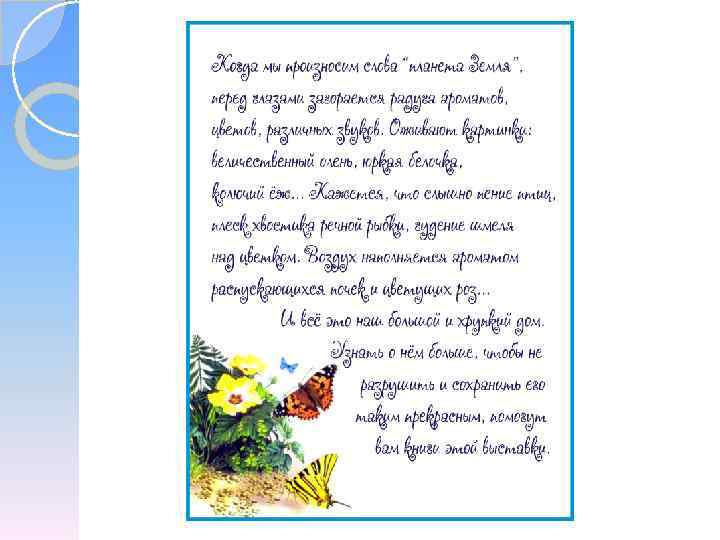 Когда мы произносим слова "планета Земля",
перед глазами загорается радуга ароматов,
цветов, различных звуков. Оживают картинки:
величественный олень, юркая белочка,
колючий ёж... Кажется, что слышно пение птиц,
плеск хвостика речной рыбки, гудение шмеля
над цветком. Воздух наполняется ароматом
распускающихся почек и цветущих роз...
И всё это наш большой и хрупкий дом.
Узнать о нём больше, чтобы не
разрушить и сохранить его
таким прекрасным, помогут
вам книги этой выставки.